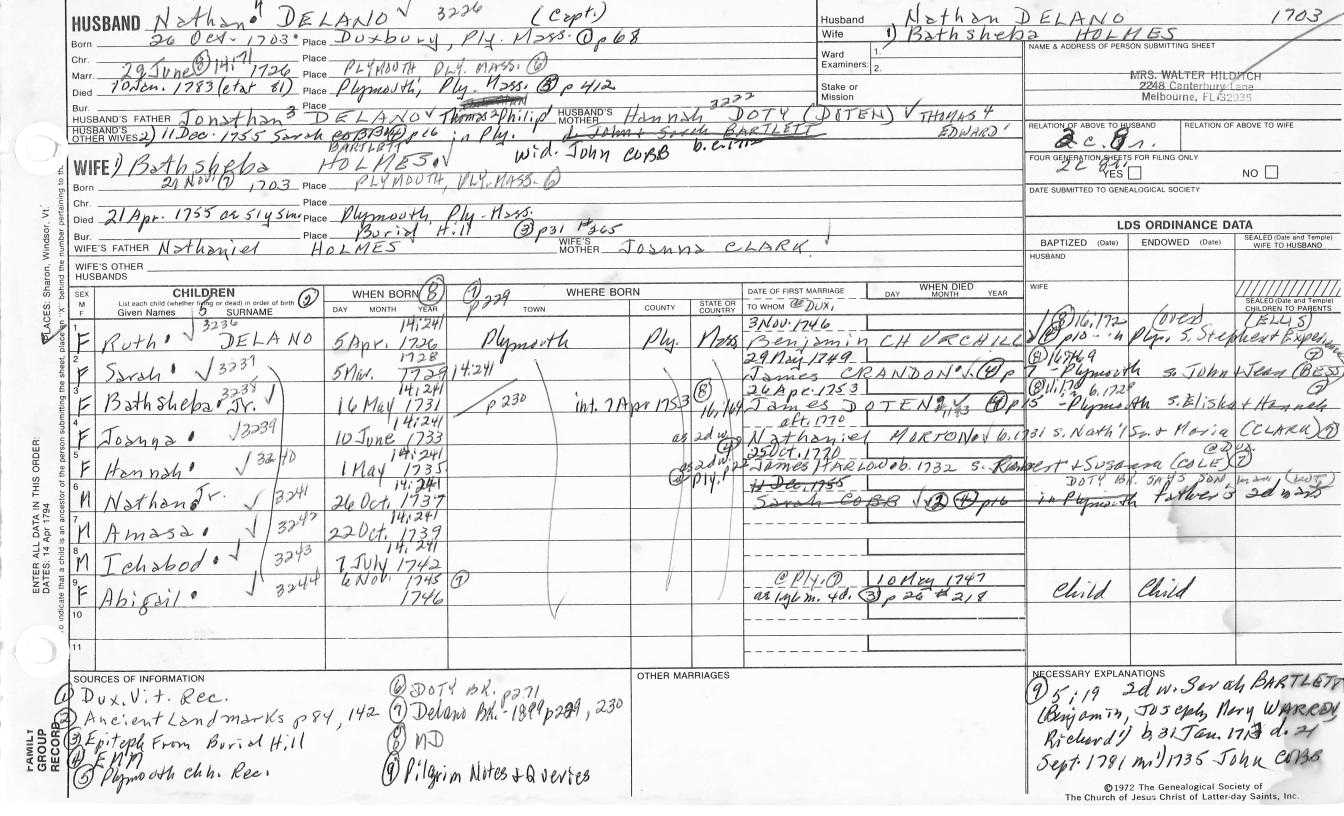 HUSBAND Nathan 4 DELANO 3226 (Capt.)
Born 26 Oct. 1703 Place Duxbury, Ply. Mass. ① p68
Chr. Place
Marr. 29 June ⑧ 14:71 1726 Place PLYMOUTH PLY. MASS. ⑥
Died 10 Jan. 1783 (etat 81) Place Plymouth, Ply. Mass. ③ p412
Bur. Place
HUSBAND'S FATHER Jonathan 3 DELANO Thomas 2 Philip HUSBAND'S MOTHER Hannah DOTY (DOTEN) 3222 THOMAS 4 EDWARD 1
HUSBAND'S OTHER WIVES 2) 11 Dec. 1755 Sarah BARTLETT p16 in Ply. d. John + Sarah BARTLETT
wid. John COBB b.c.1712
Husband Nathan DELANO 1703
Wife 1) Bathsheba HOLMES
Ward Examiners: 1. 2.
Stake or Mission
NAME & ADDRESS OF PERSON SUBMITTING SHEET
MRS. WALTER HILDITCH
2248 Canterbury Lane
Melbourne, FL 32935
RELATION OF ABOVE TO HUSBAND RELATION OF ABOVE TO WIFE
FOUR GENERATION SHEETS FOR FILING ONLY
YES NO
DATE SUBMITTED TO GENEALOGICAL SOCIETY
WIFE 1) Bathsheba HOLMES
Born 21 Nov. ⑦ 1703 Place PLYMOUTH, PLY. MASS. ⑥
Chr. Place
Died 21 Apr. 1755 ae 51y 5m Place Plymouth, Ply. Mass.
Bur. Place Burial Hill ③ p31 #265
WIFE'S FATHER Nathaniel HOLMES WIFE'S MOTHER Joanna CLARK
WIFE'S OTHER HUSBANDS
LDS ORDINANCE DATA
BAPTIZED (Date) ENDOWED (Date) SEALED (Date and Temple) WIFE TO HUSBAND
HUSBAND
WIFE
SEALED (Date and Temple) CHILDREN TO PARENTS
SEX M F
CHILDREN
List each child (whether living or dead) in order of birth ②
Given Names 5 SURNAME
WHEN BORN ⑧
DAY MONTH YEAR
⑦ p229 WHERE BORN
TOWN COUNTY STATE OR COUNTRY
DATE OF FIRST MARRIAGE
TO WHOM @ DUX.
WHEN DIED
DAY MONTH YEAR
1 F Ruth 3236 DELANO 14:241 5 Apr. 1726 Plymouth Ply. Mass 3 Nov. 1746 Benjamin CHURCHILL ⑧ 16:172 (over) (ELLIS) p10 Ply. s. Stephen + Experience
2 F Sarah 3237 1728 5 Mar. 1729 14:241 29 May 1749 James CRANDON ④ p7 - Plymouth s. John + Jean (BESS)
3 F Bathsheba Jr. 3238 14:241 16 May 1731 p230 int. 7 Apr 1753 ⑧ 16:164 26 Apr. 1753 James DOTEN ④ p15 - Plymouth s. Elisha + Hannah
4 F Joanna 3239 14:241 10 June 1733 as 2d w. aft. 1770 Nathaniel MORTON b. 1731 s. Nath'l Sr. + Maria (CLARK) ⑦
5 F Hannah 3240 14:241 1 May 1735 as 2d w. 25 Oct. 1770 James HARLOW b. 1732 s. Robert + Susanna (COLE) ⑦ @ Dux.
6 M Nathan Jr. 3241 14:241 26 Oct. 1737 11 Dec. 1755 Sarah COBB ② ④ p16 in Plymouth father's 2d marr
DOTY BK. SAYS SON
7 M Amasa 3242 14:241 22 Oct. 1739
8 M Ichabod 3243 14:241 7 July 1742
9 F Abigail 3244 6 Nov. 1745 ⑦ 1746 @ Ply. ⑦ 10 May 1747 as 1y 6m. 4d. ③ p26 #218 Child Child
10
11
SOURCES OF INFORMATION
① Dux. Vit. Rec.
② Ancient Landmarks p84, 142
③ Epitaph From Burial Hill
④ EMM
⑤ Plymouth Chh. Rec.
⑥ DOTY BK. p271
⑦ Delano BK.-1899 p229, 230
⑧ MD
⑨ Pilgrim Notes + Queries
OTHER MARRIAGES
NECESSARY EXPLANATIONS
⑨ 5:19 2d w. Sarah BARTLETT
(Benjamin, Joseph, Mary WARREN
Richard 1) b. 31 Jan. d. 21
Sept. 1781 m. 1) 1735 John COBB
©1972 The Genealogical Society of
The Church of Jesus Christ of Latter-day Saints, Inc.
PLACES: Sharon, Windsor, Vt.
ENTER ALL DATA IN THIS ORDER:
DATES: 14 Apr 1794
to indicate that a child is an ancestor of the person submitting the sheet, place an "X" behind the number pertaining to th
FAMILY GROUP RECORD